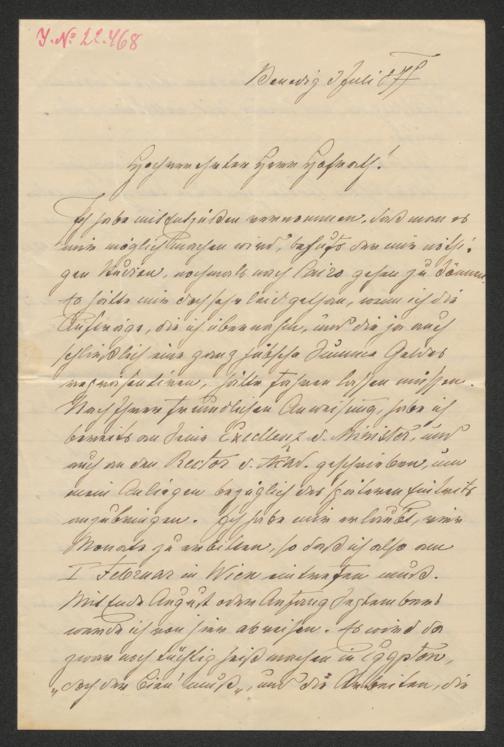 J. No 22.468
Venedig 3 Juli 77
Hochverehrter Herr Hofrath!
Ich habe mit Entzücken vernommen, daß man es
mir möglich machen wird, behufs der mir nöthi-
gen Studien, nochmals nach Cairo gehen zu können.
Es hätte mir doch sehr leid gethan, wenn ich die
Aufträge, die ich übernahm, und die ja auch
schließlich eine ganz hübsche Summe Geldes
repräsentiren, hätte fahren lassen müssen.
Nach Ihrer freundlichen Anweisung, habe ich
bereits an Seine Excellenz d. Minister, und
auch an den Rector d. Akad. geschrieben, um
mein Anliegen bezüglich des späteren Eintritts
anzubringen. Ich habe mir erlaubt, vier
Monate zu erbitten, so daß ich also am
1 Februar in Wien eintreffen muß.
Mit Ende August oder Anfang Septembers
werde ich von hier abreisen. Es wird da
zwar noch tüchtig heiß machen in Egypten,
"doch der Bien' muß", und die Arbeiten, die